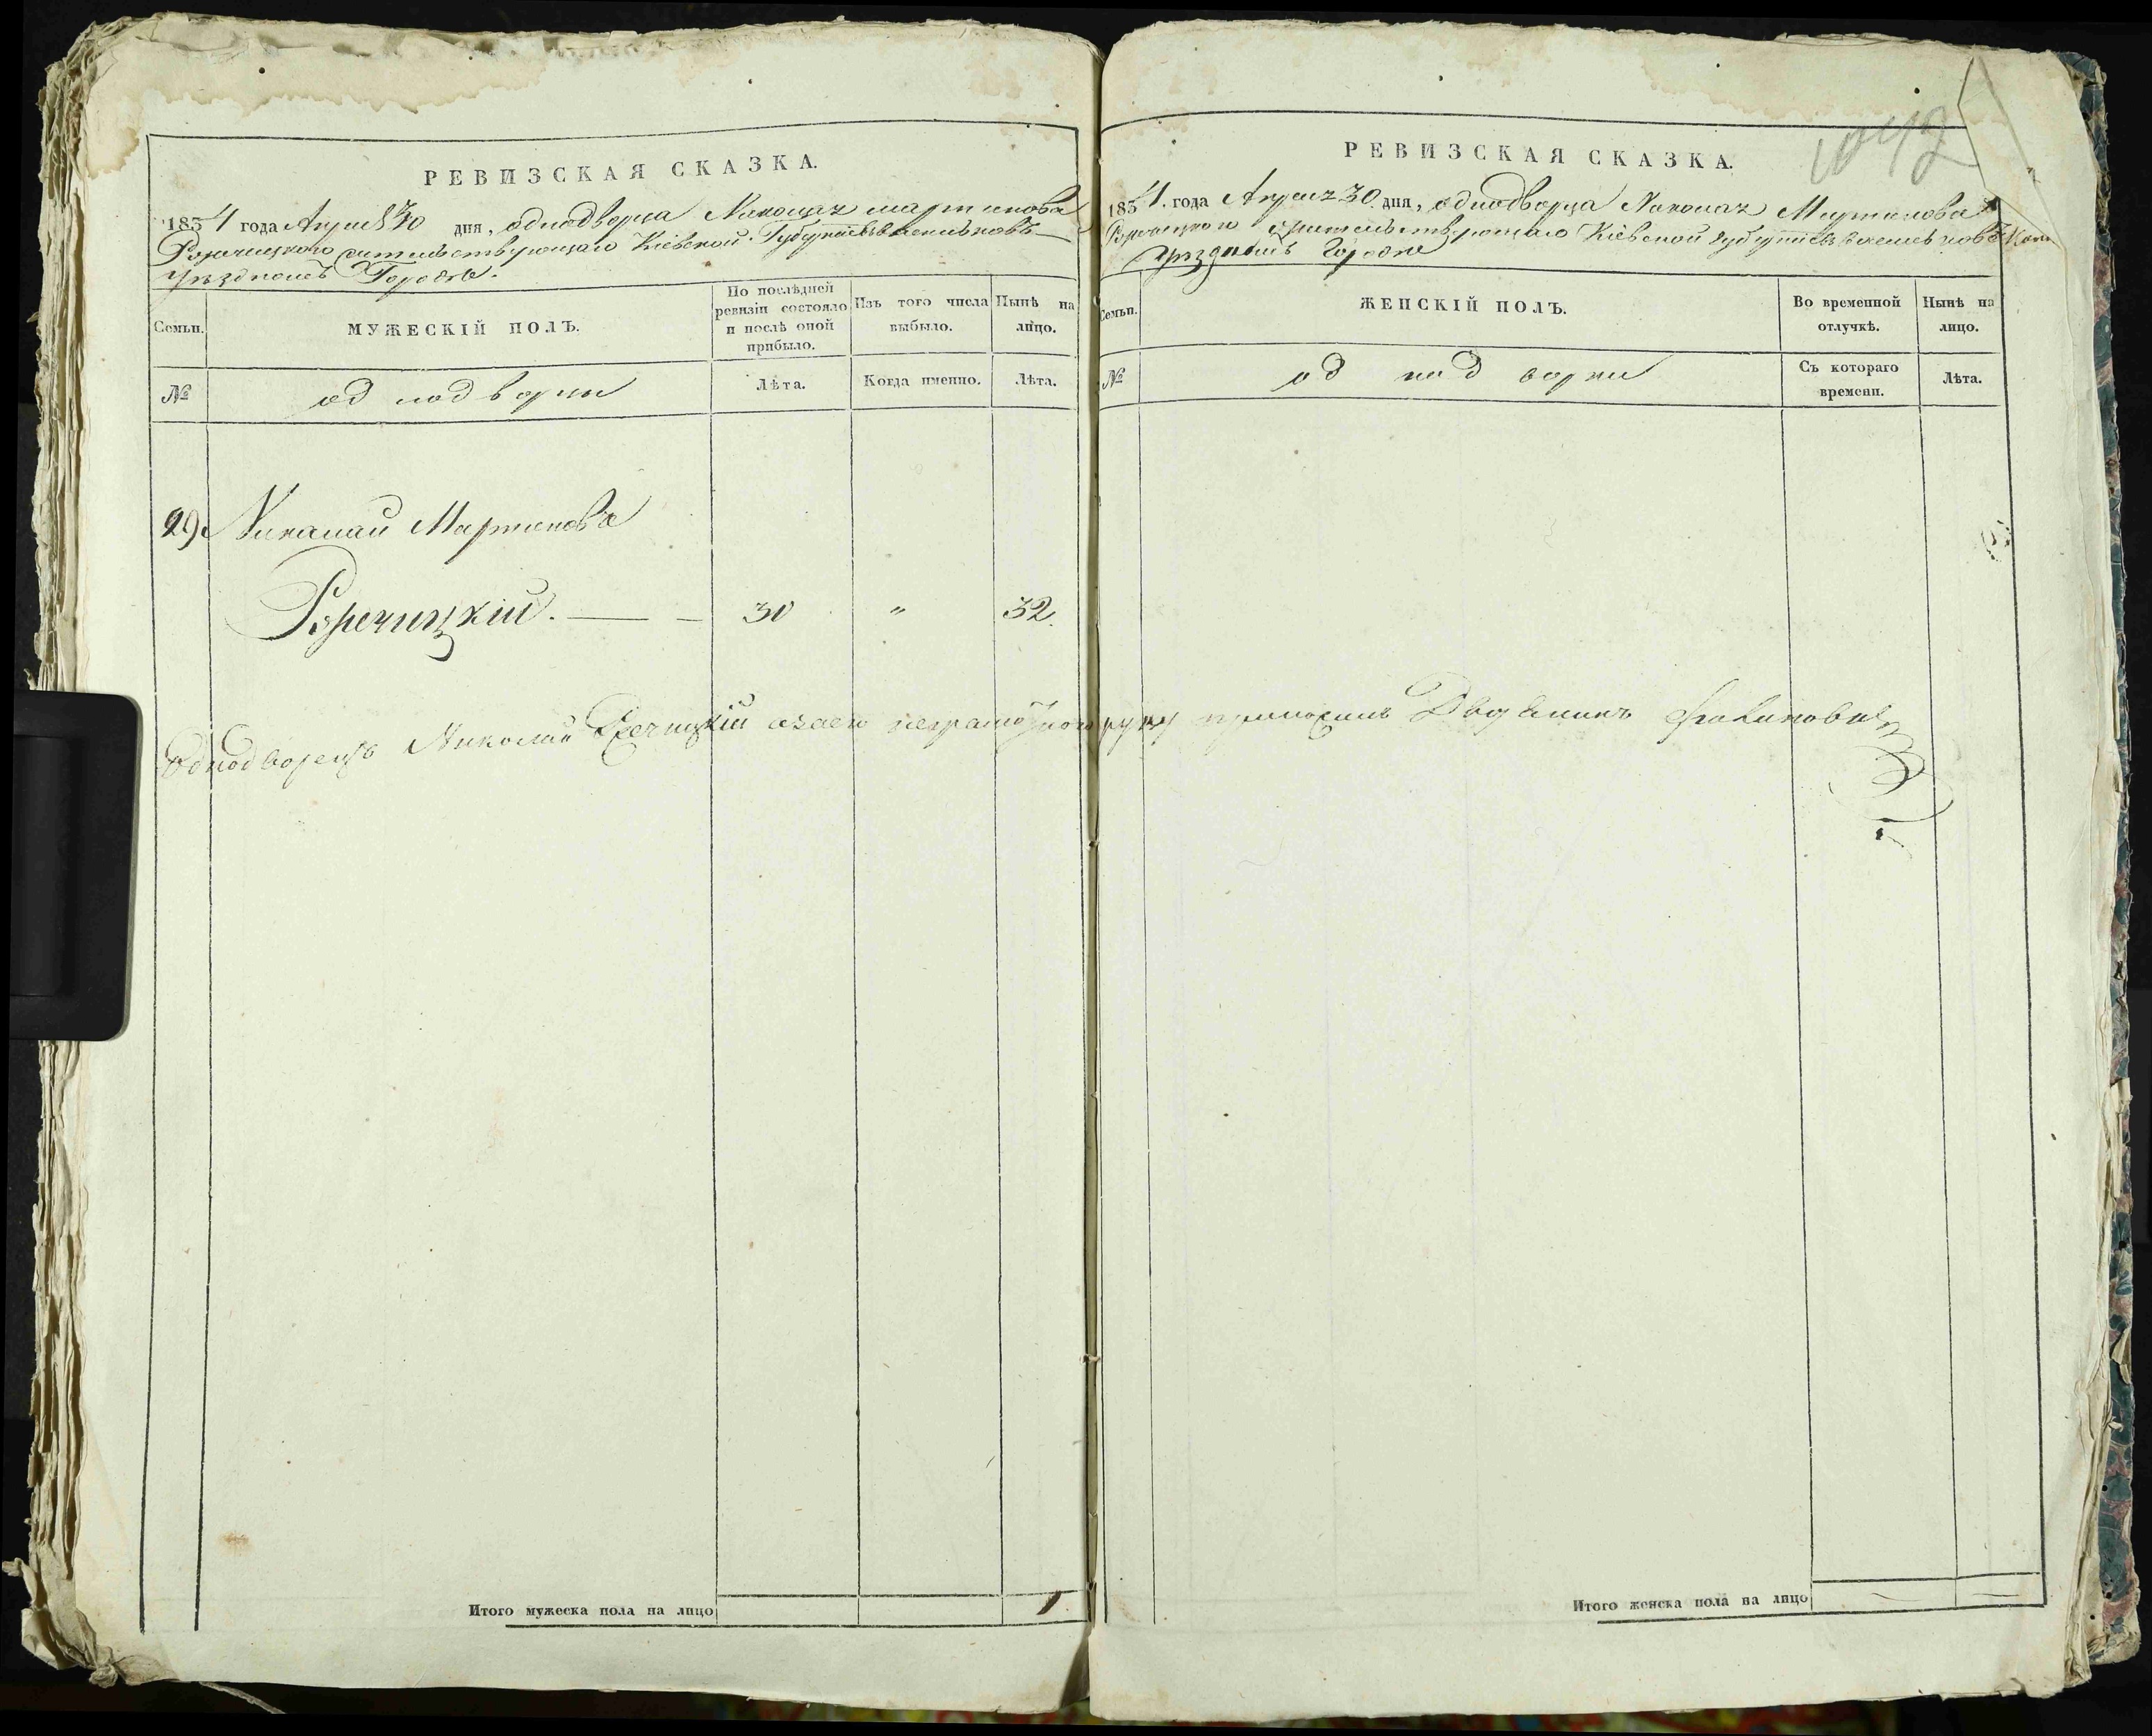 РЕВИЗСКАЯ СКАЗКА.
1834 года Апреля 30 дня, однодворца Николая Мартинова
жительствующаго Кіевской Губерніи въ Васильков
уѣздномъ Городѣ.
Семьи. МУЖЕСКІЙ ПОЛЪ. По послѣдней ревизіи состояло и послѣ оной прибыло. Изъ того числа выбыло. Нынѣ на лицо.
№ однодворцы Лѣта. Когда именно. Лѣта.
29. Николай Мартиновъ
Роречицкій. 30 " 32.
Однодворецъ Николай Речицкій а за его неграмотного руку приложилъ Дворянинъ
Итого мужеска пола на лицо 1
1042
РЕВИЗСКАЯ СКАЗКА.
1834. года Апреля 30. дня, однодворца Николая Мартинова
жительствующаго Кіевской Губерніи въ Васильков
уѣздномъ Городѣ
Семьи. ЖЕНСКІЙ ПОЛЪ. Во временной отлучкѣ. Нынѣ на лицо.
№ однодворки Съ котораго времени. Лѣта.
Итого женска пола на лицо